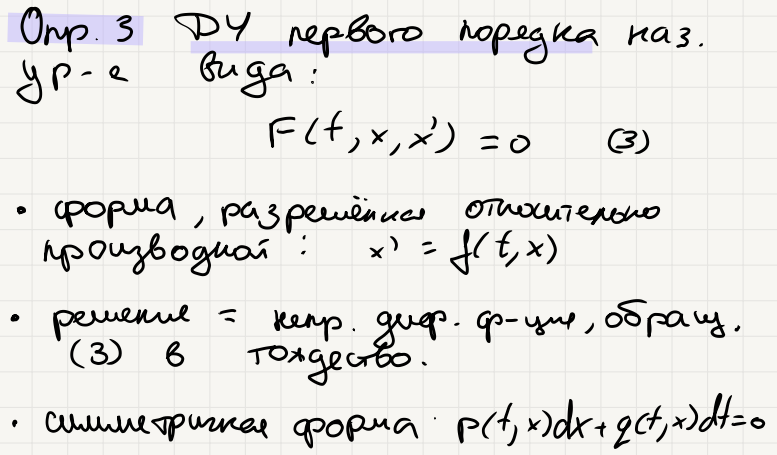 Опр. 3 ДУ первого порядка наз.
ур-е вида:
F(t, x, x') = 0 (3)
• форма, разрешённая относительно
производной: x' = f(t, x)
• решение = непр. диф. ф-ция, обращ.
(3) в тождество.
• симметричная форма p(t, x)dx + q(t, x)dt = 0